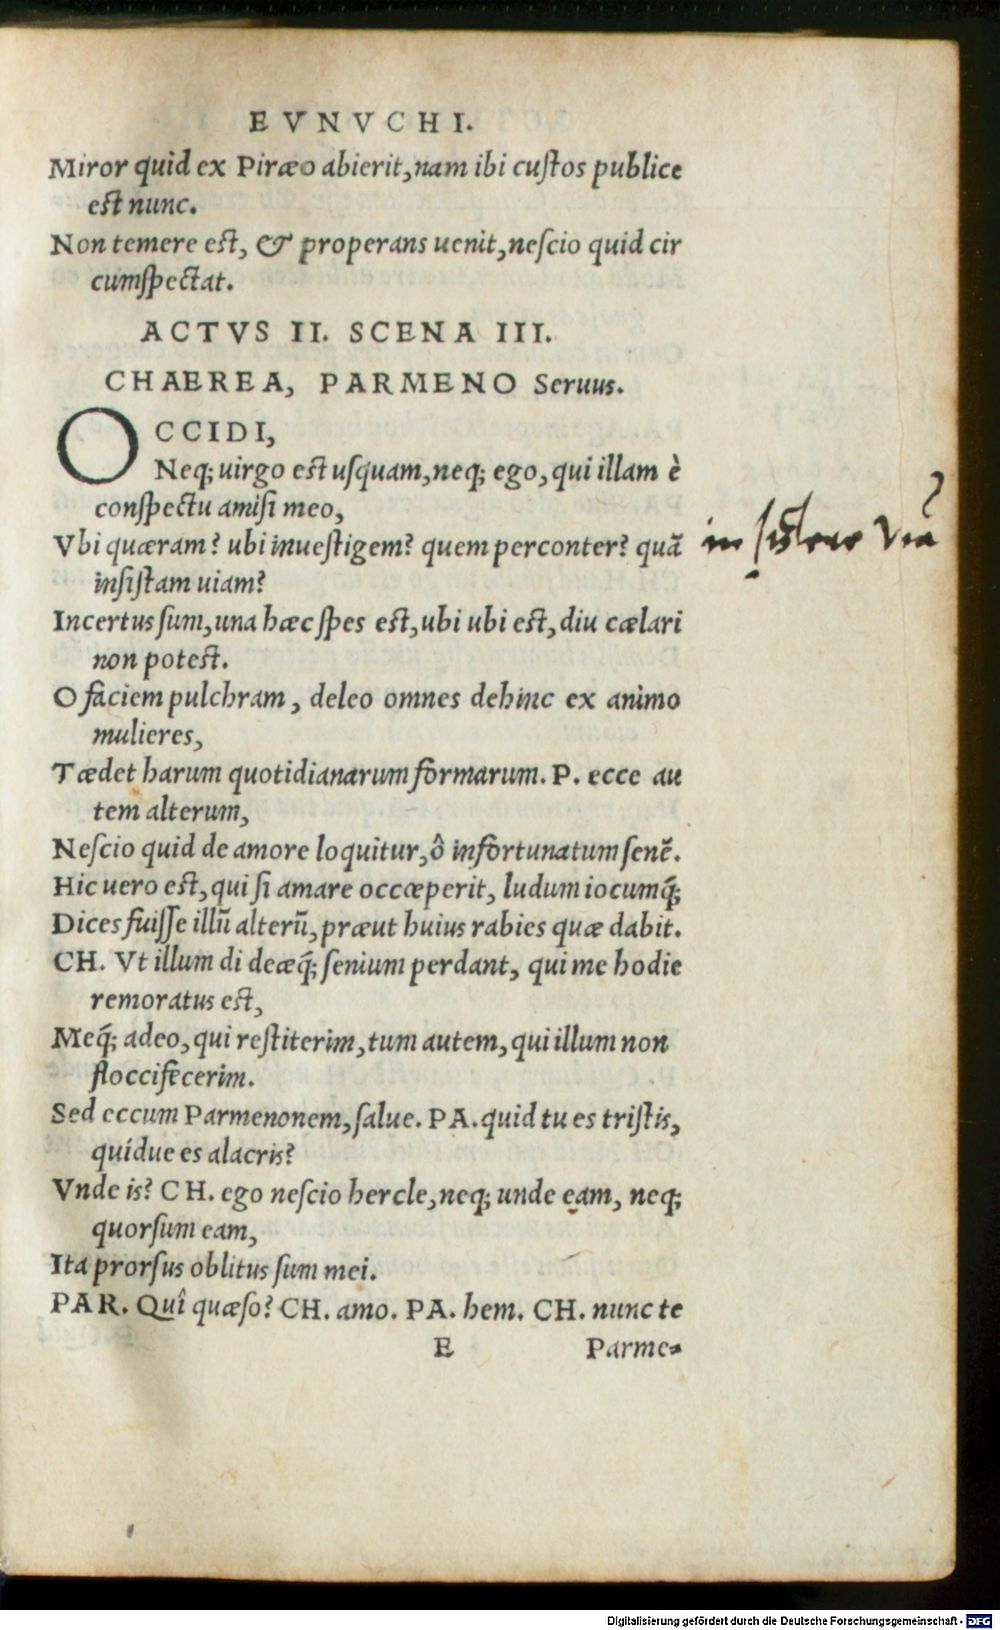 EVNVCHI.
Miror quid ex Piræo abierit, nam ibi custos publice
est nunc.
Non temere est, & properans uenit, nescio quid cir
cumspectat.
ACTVS II. SCENA III.
CHAEREA, PARMENO Seruus.
OCCIDI,
Neq; uirgo est usquam, neq; ego, qui illam è
conspectu amisi meo,
Vbi quæram? ubi inuestigem? quem perconter? quã
insistam uiam?
Incertus sum, una hæc spes est, ubi ubi est, diu cælari
non potest.
O faciem pulchram, deleo omnes dehinc ex animo
mulieres,
Tædet harum quotidianarum formarum. P. ecce au
tem alterum,
Nescio quid de amore loquitur, ô infortunatum senẽ.
Hic uero est, qui si amare occœperit, ludum iocumq̃;
Dices fuisse illũ alterũ, præut huius rabies quæ dabit.
CH. Vt illum di deæq̃; senium perdant, qui me hodie
remoratus est,
Meq̃; adeo, qui restiterim, tum autem, qui illum non
floccifecerim.
Sed eccum Parmenonem, salue. PA. quid tu es tristis,
quidue es alacris?
Vnde is? CH. ego nescio hercle, neq; unde eam, neq;
quorsum eam,
Ita prorsus oblitus sum mei.
PAR. Quî quæso? CH. amo. PA. hem. CH. nunc te
E Parme-
in sistere viã
Digitalisierung gefördert durch die Deutsche Forschungsgemeinschaft - DFG